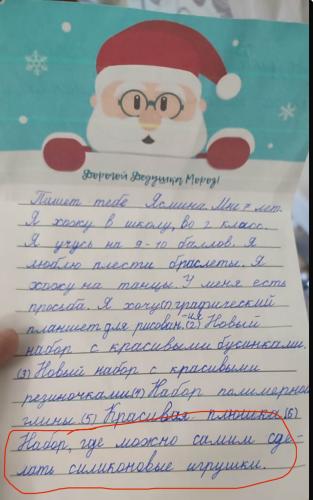 Дорогой Дедушка Мороз!
Пишет тебе Ясмина. Мне 7 лет.
Я хожу в школу, во 2 класс.
Я учусь на 9-10 баллов. Я
люблю плести браслеты. Я
хожу на танцы. У меня есть
просьба. Я хочу (1) графический
планшет для рисован-ия. (2) Новый
набор с красивыми бусинками.
(3) Новый набор с красивыми
резиночками. (4) Набор полимерной
глины. (5) Красивая плюшка. (6)
Набор, где можно самим сде-
лать силиконовые игрушки.